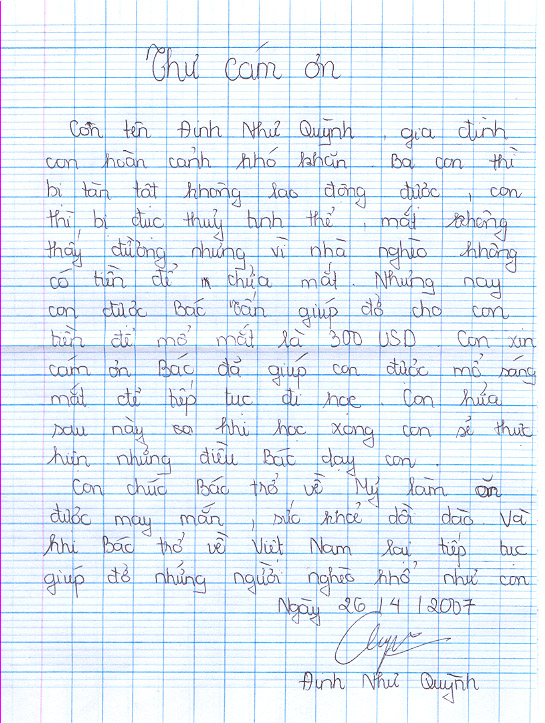 Thư cám ơn
Con tên Đinh Như Quỳnh, gia đình
con hoàn cảnh khó khăn. Ba con thì
bị tàn tật không lao động được, con
thì bị đục thuỷ tinh thể, mắt không
thấy đường nhưng vì nhà nghèo không
có tiền để chữa mắt. Nhưng nay
con được Bác giúp đở cho con
tiền để mổ mắt là 300 USD. Con xin
cám ơn Bác đã giúp con được mổ sáng
mắt để tiếp tục đi học. Con hứa
sau này khi học xong con sẻ thực
hiện những điều Bác dạy con.
Con chúc Bác trở về Mỹ làm ăn
được may mắn, sức khoẻ dồi dào. Và
khi Bác trở về Việt Nam lại tiếp tục
giúp đở những người nghèo khổ như con
Ngày 26/4/2007
Đinh Như Quỳnh